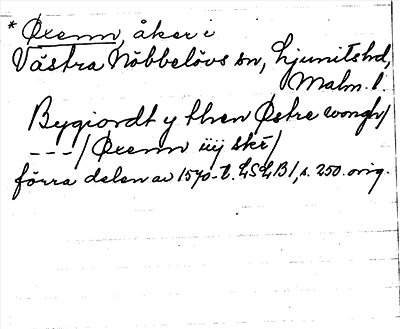 * Øxenn, åker i
Västra Nöbbelövs sn, Ljunitshd,
Malm. l.
Bygiordt y then Østre wongh/
---/ Øxenn iiij skr/
förra delen av 1570-t. LSLB 1, s. 250. orig.